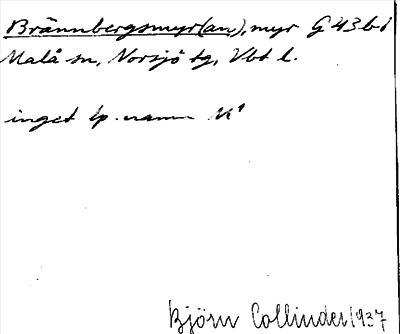 Brännbergsmyr(an), myr G 43 b d
Malå sn, Norsjö tg, Vbt l.
inget lp. namn K¹
Björn Collinder 1937